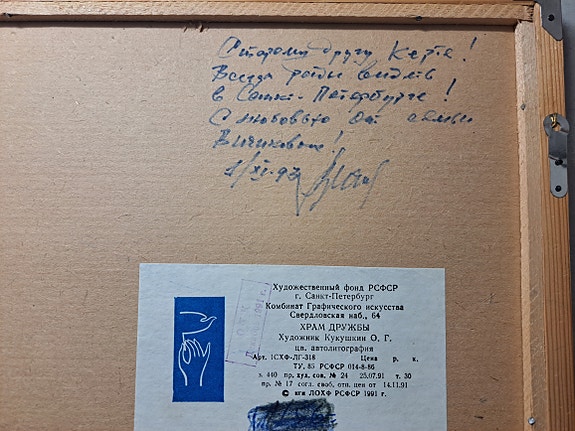 Старому другу Кертe!
Всегда рады видеть
в Санкт-Петербурге!
С любовью от семьи
1/XI-97
Художественный фонд РСФСР
г. Санкт-Петербург
Комбинат Графического искусства
Свердловская наб., 64
ХРАМ ДРУЖБЫ
Художник Кукушкин О. Г.
цв. автолитография
Арт. 1СХФ-ЛГ-318 Цена р. к.
ТУ. 85 РСФСР 014-8-86
з. 440 пр. худ. сов. № 24 25.07.91 т. 30
пр. № 17 согл. своб. отп. цен от 14.11.91
© кги ЛОХФ РСФСР 1991 г.